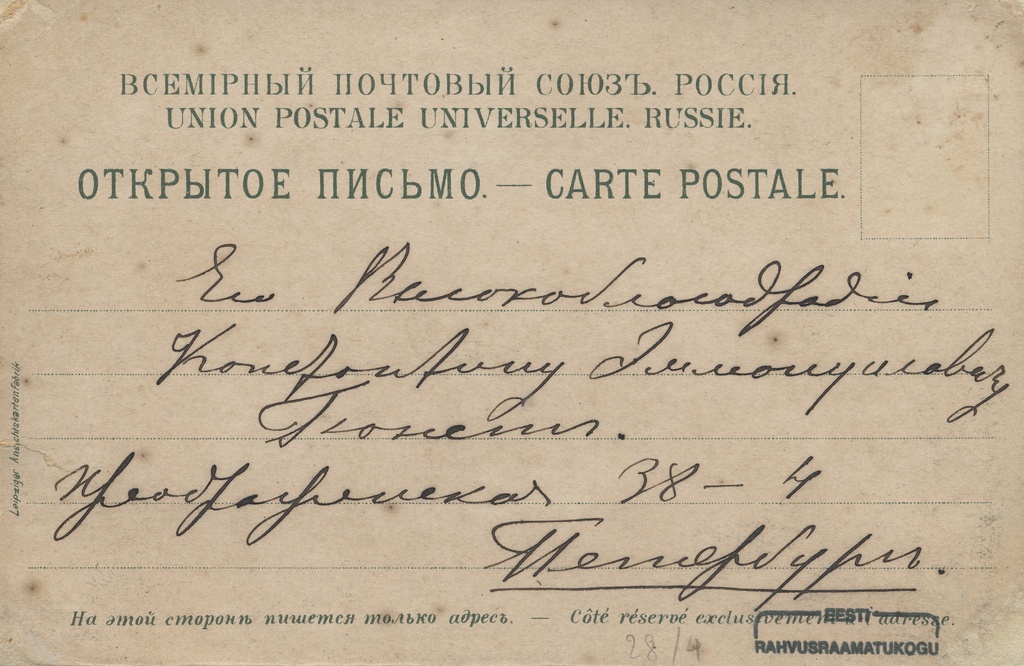 ВСЕМІРНЫЙ ПОЧТОВЫЙ СОЮЗЪ. РОССІЯ.
UNION POSTALE UNIVERSELLE. RUSSIE.
ОТКРЫТОЕ ПИСЬМО. — CARTE POSTALE.
Его Высокоблагородію
Константину Эммануиловичу
Преображенская 38 – 4
Петербургъ.
Leipziger Ansichtskartenfabrik
На этой сторонѣ пишется только адресъ. — Côté réservé exclusivement à l'adresse.
28/4
EESTI
RAHVUSRAAMATUKOGU